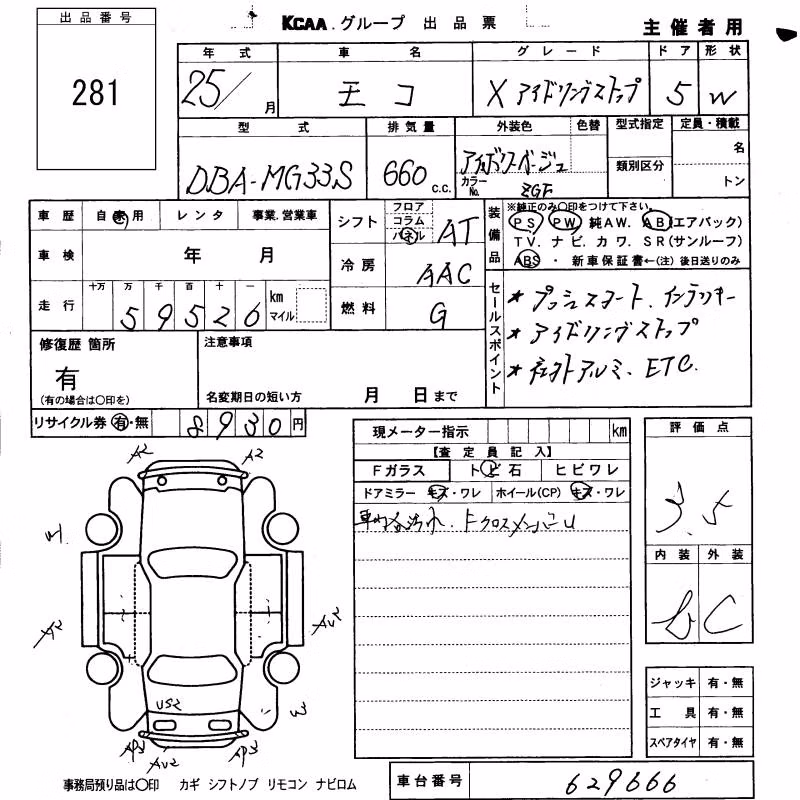 出品番号
281
KCAA.グループ 出品票
主催者用
年式 車名 グレード ドア 形状
25/ 月 モコ X アイドリングストップ 5 W
型式 排気量 外装色 色替 型式指定 定員・積載
DBA-MG33S 660 c.c. アイボリーベージュ 名
カラーNo. ZGF 類別区分 トン
車歴 自家用 レンタ 事業.営業車
シフト フロア コラム パネル AT
装備品 ※純正のみ○印をつけて下さい。
PS PW 純AW. AB(エアバック)
TV. ナビ. カワ. SR(サンルーフ)
ABS ・ 新車保証書←(注) 後日送りのみ
車検 年 月
冷房 AAC
走行 十万 万 千 百 十 一
59526 km マイル
燃料 G
セールスポイント
* プッシュスタート、インテリキー
* アイドリングストップ
* 社外アルミ、ETC.
修復歴 箇所
有
(有の場合は○印を)
注意事項
名変期日の短い方 月 日まで
リサイクル券 有・無 8930円
現メーター指示 km
【査定員記入】
Fガラス トビ石 ヒビワレ
ドアミラー キズ・ワレ ホイール(CP) キズ・ワレ
評価点
3.5
内装 外装
b C
A2 A2
A2 AU2
US2 W
AP3 AU2 AP3
ジャッキ 有・無
工具 有・無
スペアタイヤ 有・無
事務局預り品は○印 カギ シフトノブ リモコン ナビロム
車台番号 629666